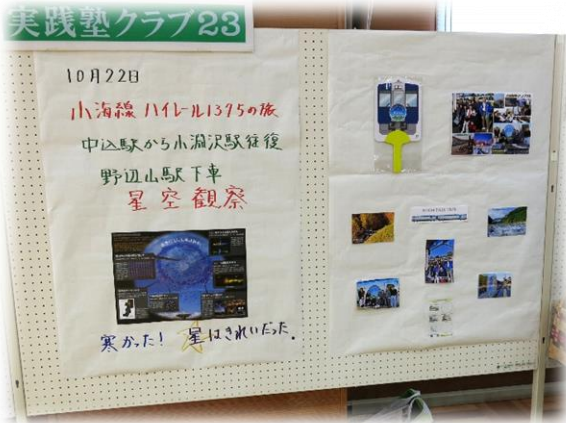 実践塾クラブ23
10月22日
小海線 ハイレール1375の旅
中込駅から小淵沢駅往復
野辺山駅下車
星空観察
寒かった！ 星はきれいだった。